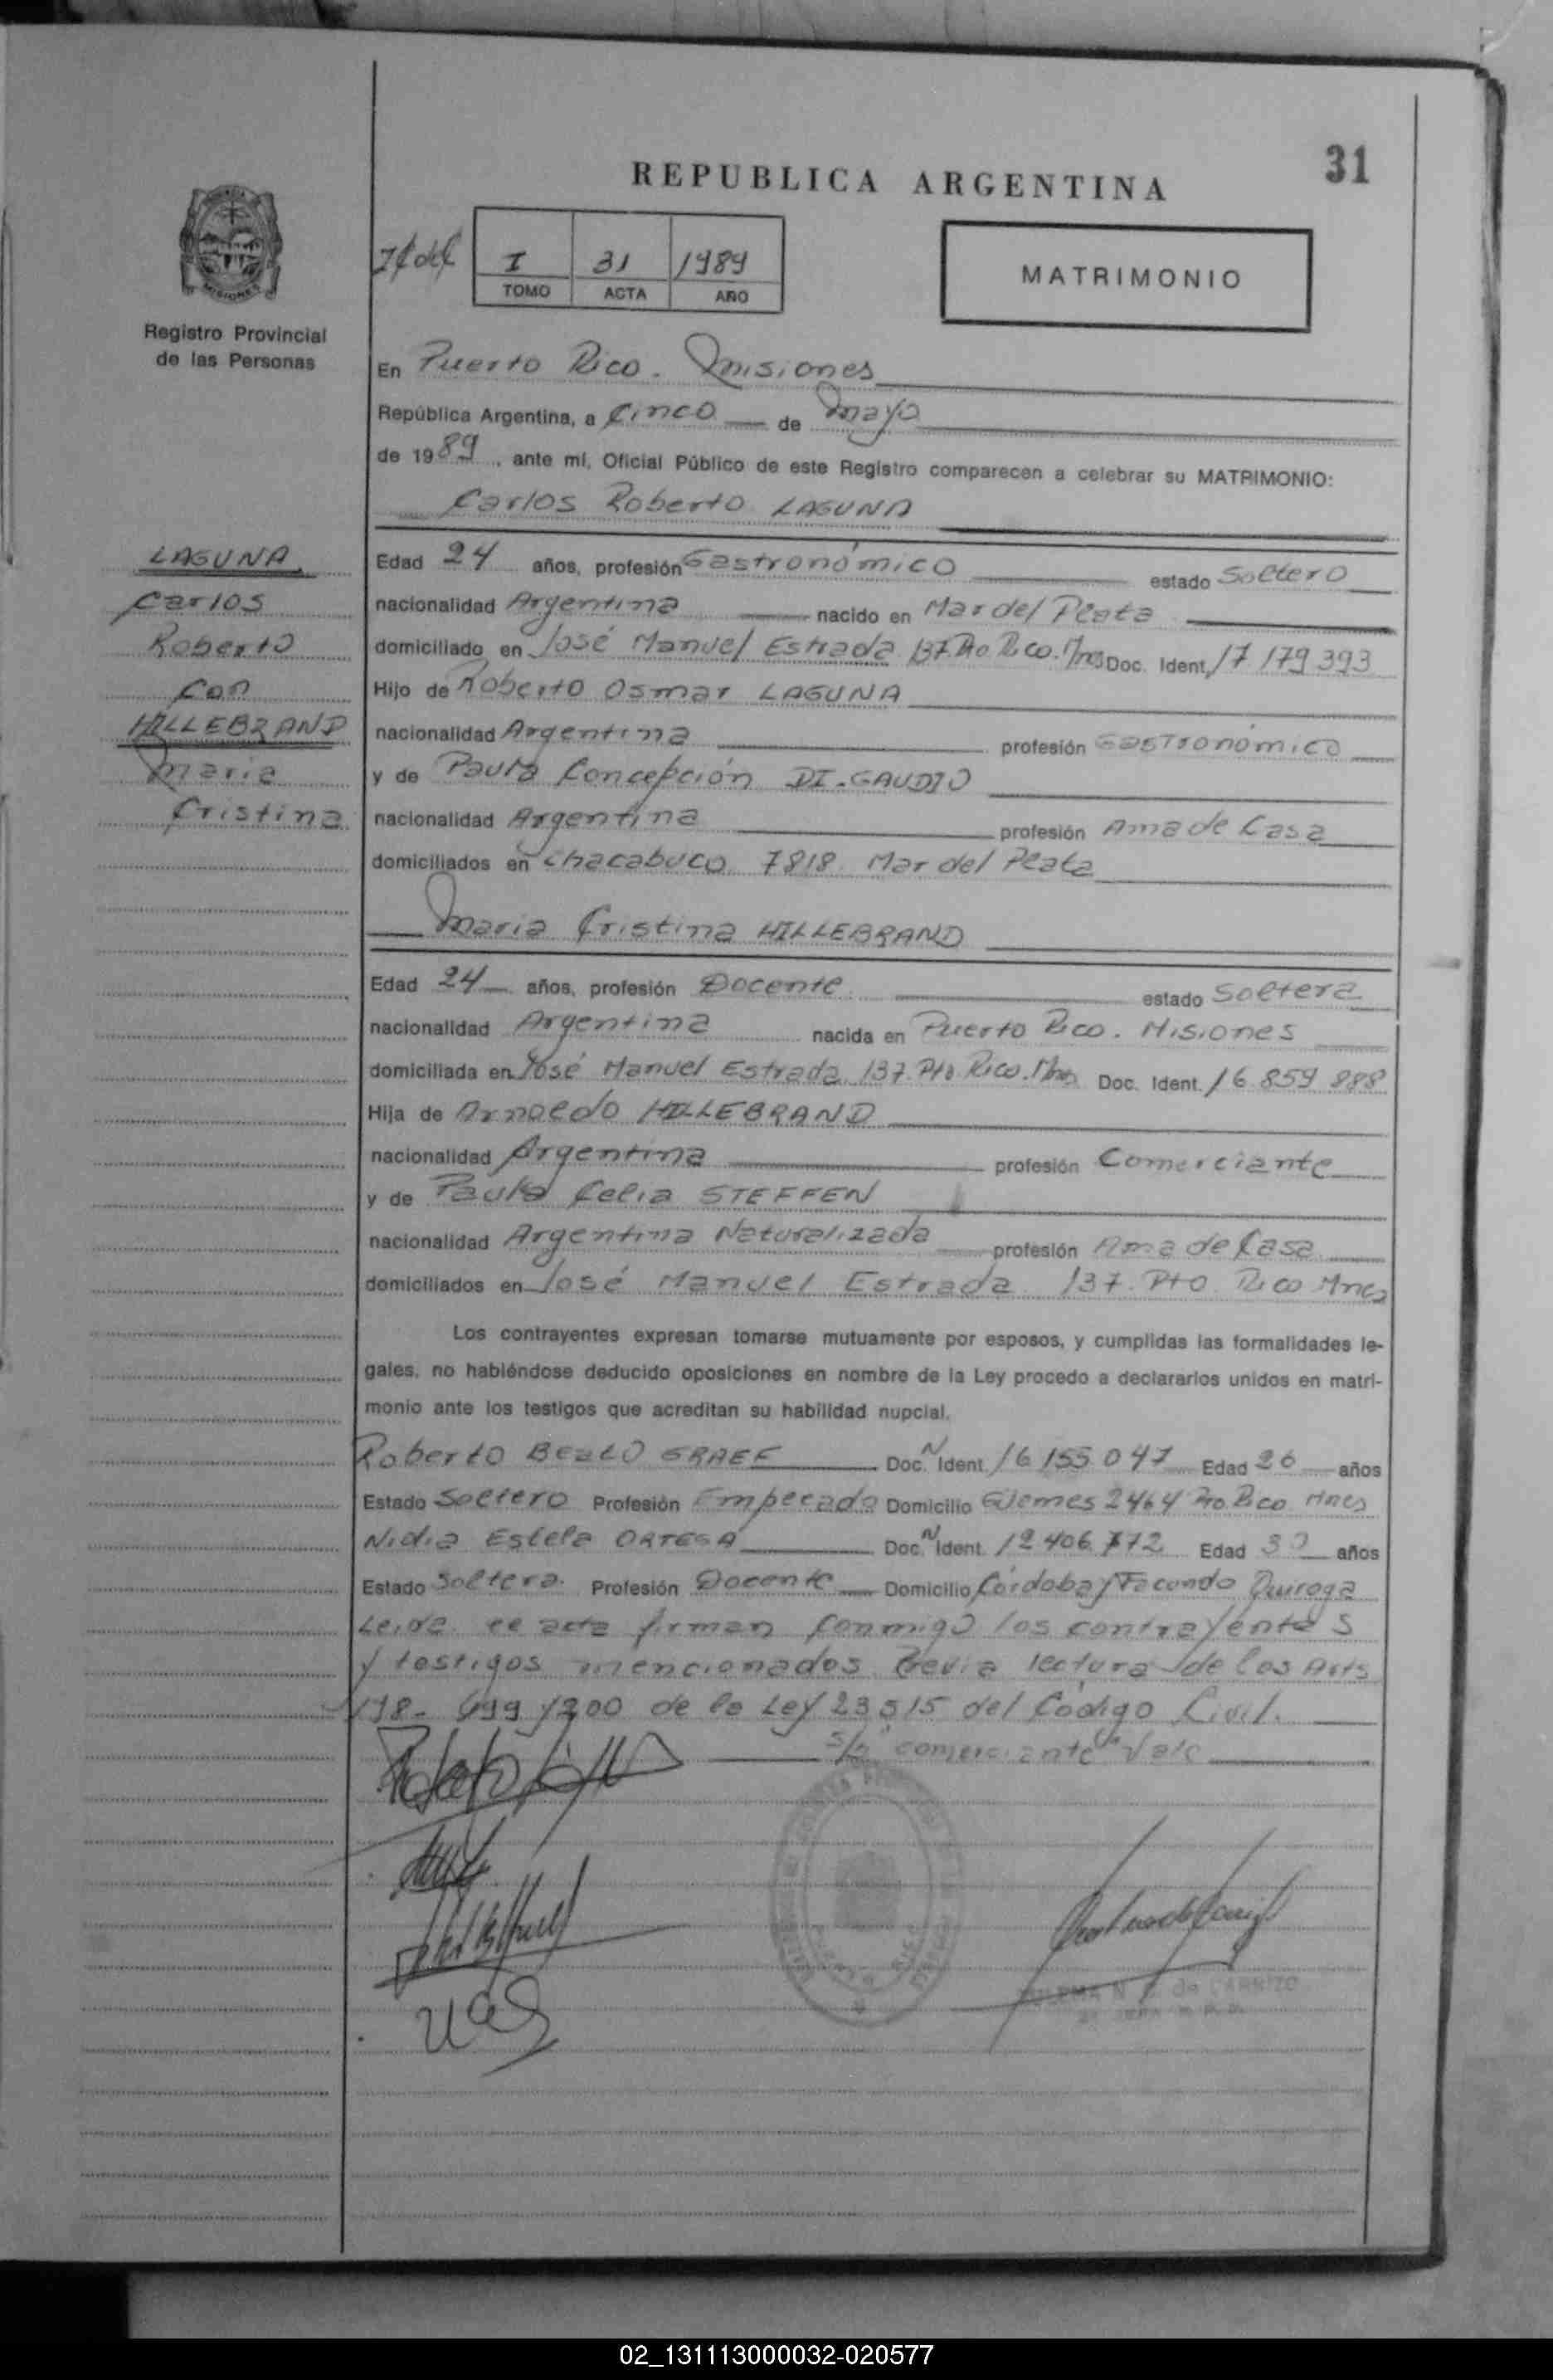 31
REPUBLICA ARGENTINA
I 31 1989
TOMO ACTA AÑO
MATRIMONIO
MISIONES
Registro Provincial
de las Personas
En Puerto Rico. Misiones
República Argentina, a Cinco de Mayo
de 1989, ante mí, Oficial Público de este Registro comparecen a celebrar su MATRIMONIO:
Carlos Roberto LAGUNA
LAGUNA
Carlos
Roberto
Con
HILLEBRAND
Maria
Cristina
Edad 24 años, profesión Gastronómico estado Soltero
nacionalidad Argentina nacido en Mar del Plata
domiciliado en José Manuel Estrada 137 Pto Rico. Mnes Doc. Ident. 17 179 393
Hijo de Roberto Osmar LAGUNA
nacionalidad Argentina profesión Gastronómico
y de Paula Concepción DI-GAUDIO
nacionalidad Argentina profesión Ama de Casa
domiciliados en Chacabuco 7818. Mar del Plata
Maria Cristina HILLEBRAND
Edad 24 años, profesión Docente estado Soltera
nacionalidad Argentina nacida en Puerto Rico. Misiones
domiciliada en José Manuel Estrada 137. Pto Rico. Mnes Doc. Ident. 16 859 888
Hija de Arnoldo HILLEBRAND
nacionalidad Argentina profesión Comerciante
y de Paula Celia STEFFEN
nacionalidad Argentina Naturalizada profesión Ama de Casa
domiciliados en José Manuel Estrada 137. Pto Rico Mnes
Los contrayentes expresan tomarse mutuamente por esposos, y cumplidas las formalidades le-
gales, no habiéndose deducido oposiciones en nombre de la Ley procedo a declararlos unidos en matri-
monio ante los testigos que acreditan su habilidad nupcial.
Roberto GRAEF Doc. N Ident. 16 155 047 Edad 26 años
Estado Soltero Profesión Empleado Domicilio Güemes 2464 Pto. Rico Mnes
Nidia Estela ORTEGA Doc. N Ident. 12 406 772 Edad 30 años
Estado Soltera. Profesión Docente Domicilio Córdoba y Facundo Quiroga
Leida el acta firman conmigo los contrayentes
y testigos mencionados Previa lectura de los Arts
198- 199 y 200 de la Ley 23 515 del Código Civil.
S/R "comerciante" Vale
de CARRIZO
02_131113000032-020577